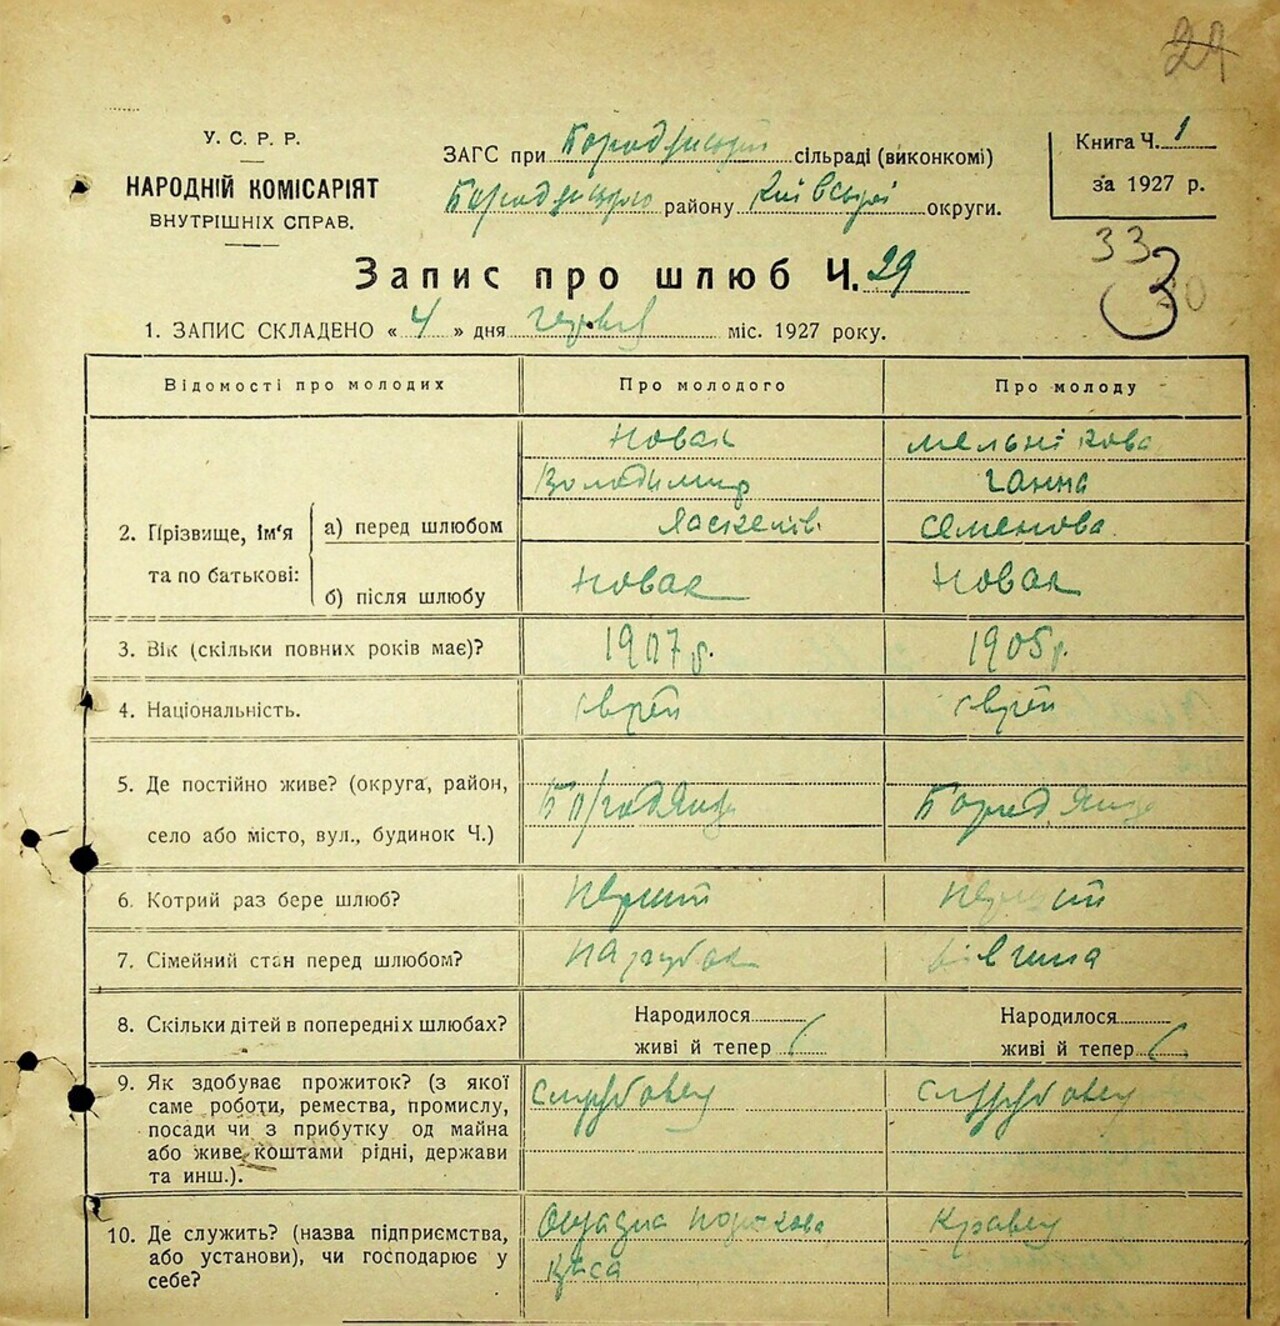 24
У. С. Р. Р.
НАРОДНІЙ КОМІСАРІЯТ
ВНУТРІШНІХ СПРАВ.
ЗАГС при сільраді (виконкомі)
району Київської округи.
Книга Ч. 1
за 1927 р.
33
Запис про шлюб Ч. 29
1. ЗАПИС СКЛАДЕНО « 4 » дня червня міс. 1927 року.
Відомості про молодих Про молодого Про молоду
2. Прізвище, ім'я та по батькові:
а) перед шлюбом
Новак Мельнікова
Володимир Ганна
Семенова
б) після шлюбу Новак Новак
3. Вік (скільки повних років має)? 1907 р. 1905 р.
4. Національність. єврей єврей
5. Де постійно живе? (округа, район,
село або місто, вул., будинок Ч.)
Бородянц Бородянц
6. Котрий раз бере шлюб? перший перший
7. Сімейний стан перед шлюбом? парубок дівчина
8. Скільки дітей в попередніх шлюбах? Народилося Народилося
живі й тепер живі й тепер
9. Як здобуває прожиток? (з якої
саме роботи, ремества, промислу,
посади чи з прибутку од майна
або живе коштами рідні, держави
та инш.).
службовец службовец
10. Де служить? (назва підприємства,
або установи), чи господарює у
себе?
каса
кравец